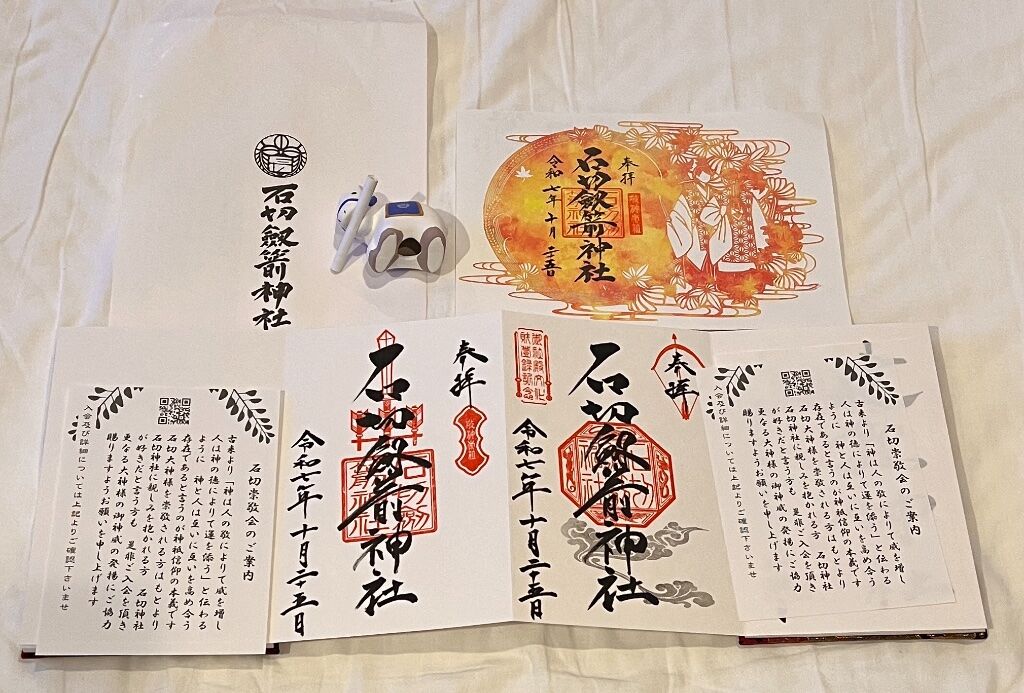 石切劔箭神社
奉拝
石切劔箭神社
令和七年十月二十五日
石切崇敬会のご案内
古来より「神は人の敬によりて威を増し
人は神の徳によりて運を添う」と伝わる
ように 神と人は互いに互いを高め合う
存在であると言うのが神祇信仰の本義です
石切大神様を崇敬される方はもとより
石切神社に親しみを抱かれる方 石切神社
が好きだと言う方も 是非ご入会を頂き
更なる大神様の御神威の発揚にご協力
賜りますようお願いを申し上げます
入会及び詳細については上記よりご確認下さいませ
奉拝
石切劔箭神社
令和七年十月二十五日
奉拝
石切劔箭神社
令和七年十月二十五日
石切崇敬会のご案内
古来より「神は人の敬によりて威を増し
人は神の徳によりて運を添う」と伝わる
ように 神と人は互いに互いを高め合う
存在であると言うのが神祇信仰の本義です
石切大神様を崇敬される方はもとより
石切神社に親しみを抱かれる方 石切神社
が好きだと言う方も 是非ご入会を頂き
更なる大神様の御神威の発揚にご協力
賜りますようお願いを申し上げます
入会及び詳細については上記よりご確認下さいませ